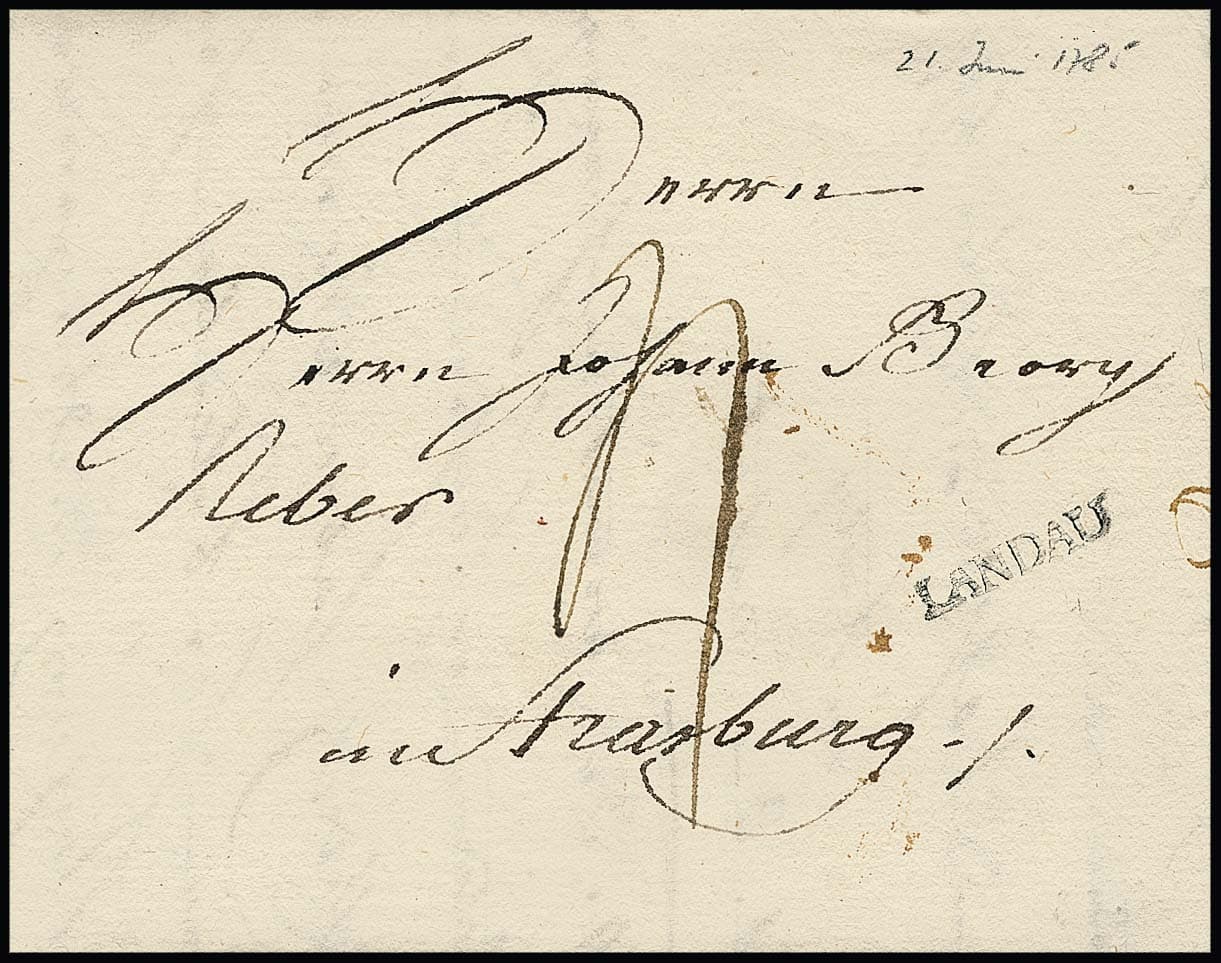 21. Juni 1785
Herrn
Herrn Johann Georg
Reber
LANDAU
in Strasburg -/.